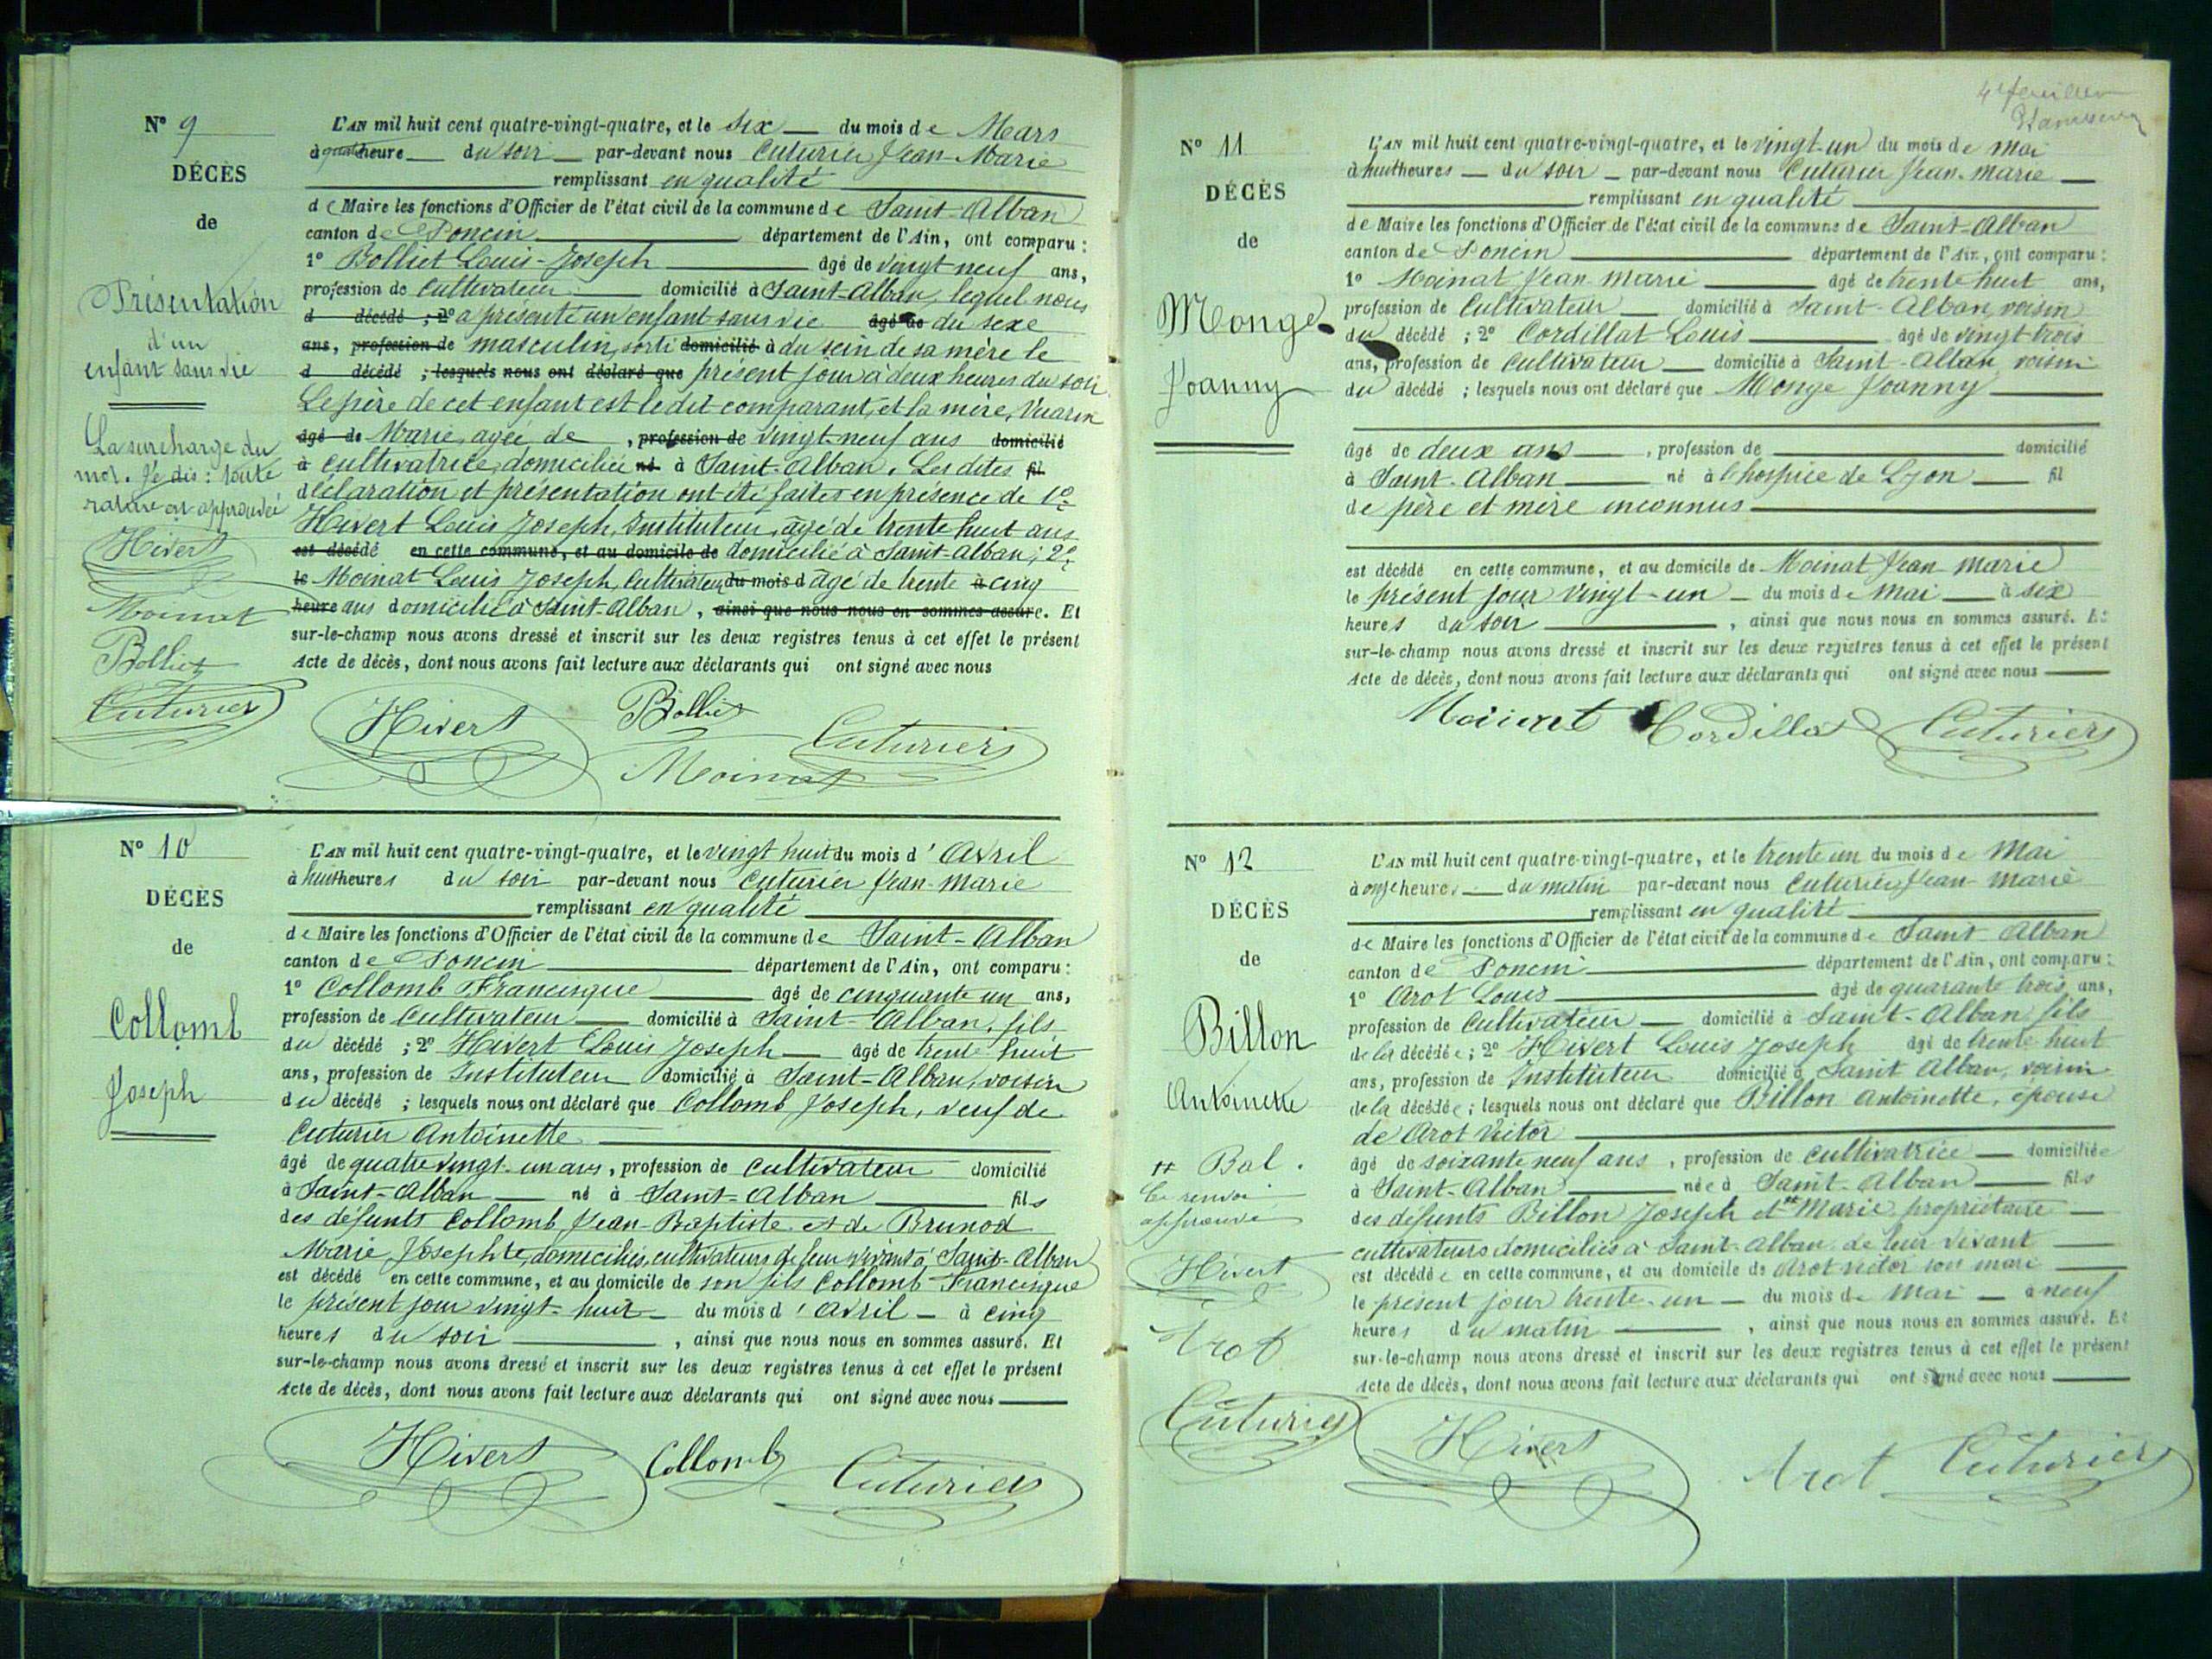 N° 9
DÉCÈS
de
Présentation
d'un
enfant sans vie
La surcharge du
mot. Je dis : toute
rature est approuvée
Hivert
Moinat
Bolliet
Cuturier
L'AN mil huit cent quatre-vingt-quatre, et le six du mois de Mars
à quatre heure du soir par-devant nous Cuturier Jean-Marie
remplissant en qualité
de Maire les fonctions d'Officier de l'état civil de la commune de Saint-Alban
canton de Poncin département de l'Ain, ont comparu :
1° Bolliet Louis-Joseph âgé de vingt neuf ans,
profession de cultivateur domicilié à Saint-Alban, lequel nous
d décédé ; 2° a présenté un enfant sans vie âgé de du sexe
ans, profession de masculin, sorti domicilié à du sein de sa mère le
d décédé ; lesquels nous ont déclaré que présent jour à deux heures du soir
Le père de cet enfant est le dit comparant, et la mère, Vuarin
âgé de Marie, agée de , profession de vingt-neuf ans domicilié
à cultivatrice, domiciliée né à Saint-Alban. Les dites fil
déclaration et présentation ont été faites en présence de 1°
Hivert Louis Joseph, Instituteur, âgé de trente huit ans
est décédé en cette commune, et au domicile de domicilié à Saint-Alban ; 2°
le Moinat Louis Joseph, cultivateur du mois d âgé de trente à cinq
heure ans domicilié à Saint-Alban , ainsi que nous nous en sommes assuré. Et
sur-le-champ nous avons dressé et inscrit sur les deux registres tenus à cet effet le présent
Acte de décès, dont nous avons fait lecture aux déclarants qui ont signé avec nous
Hivert Bolliet Cuturier
Moinat
N° 10
DÉCÈS
de
Collomb
Joseph
L'AN mil huit cent quatre-vingt-quatre, et le vingt huit du mois d'Avril
à huit heures du soir par-devant nous Cuturier Jean-Marie
remplissant en qualité
de Maire les fonctions d'Officier de l'état civil de la commune de Saint-Alban
canton de Poncin département de l'Ain, ont comparu :
1° Collomb Francisque âgé de cinquante un ans,
profession de Cultivateur domicilié à Saint-Alban, fils
du décédé ; 2° Hivert Louis Joseph âgé de trente huit
ans, profession de Instituteur domicilié à Saint-Alban, voisin
du décédé ; lesquels nous ont déclaré que Collomb Joseph, veuf de
Cuturier Antoinette
âgé de quatre vingt-un ans, profession de cultivateur domicilié
à Saint-Alban né à Saint-Alban fils
des défunts Collomb Jean-Baptiste et de Brunod
Marie, Josephte, domiciliés, cultivateurs de leur vivant à Saint-Alban
est décédé en cette commune, et au domicile de son fils Collomb Francisque
le présent jour vingt-huit du mois d'Avril à cinq
heures du soir , ainsi que nous nous en sommes assuré. Et
sur-le-champ nous avons dressé et inscrit sur les deux registres tenus à cet effet le présent
Acte de décès, dont nous avons fait lecture aux déclarants qui ont signé avec nous
Hivert Collomb Cuturier
4e feuillet
N° 11
DÉCÈS
de
Monge
Joanny
L'AN mil huit cent quatre-vingt-quatre, et le vingt-un du mois de mai
à huit heures du soir par-devant nous Cuturier Jean-marie
remplissant en qualité
de Maire les fonctions d'Officier de l'état civil de la commune de Saint-Alban
canton de Poncin département de l'Ain, ont comparu :
1° Moinat Jean marie âgé de trente huit ans,
profession de Cultivateur domicilié à Saint-Alban, voisin
du décédé ; 2° Cordillat Louis âgé de vingt trois
ans, profession de cultivateur domicilié à Saint-Alban, voisin
du décédé ; lesquels nous ont déclaré que Monge Joanny
âgé de deux ans , profession de domicilié
à Saint-Alban né à l'hospice de Lyon fil
de père et mère inconnus
est décédé en cette commune, et au domicile de Moinat Jean marie
le présent jour vingt-un du mois de mai à six
heures du soir , ainsi que nous nous en sommes assuré. Et
sur-le-champ nous avons dressé et inscrit sur les deux registres tenus à cet effet le présent
Acte de décès, dont nous avons fait lecture aux déclarants qui ont signé avec nous
Moinat Cordillat Cuturier
N° 12
DÉCÈS
de
Billon
Antoinette
## Bal.
Le renvoi
approuvé
Hivert
Arot
Cuturier
L'AN mil huit cent quatre-vingt-quatre, et le trente un du mois de Mai
à onze heures du matin par-devant nous Cuturier Jean-Marie
remplissant en qualité
de Maire les fonctions d'Officier de l'état civil de la commune de Saint-Alban
canton de Poncin département de l'Ain, ont comparu :
1° Arot Louis âgé de quarante trois ans,
profession de cultivateur domicilié à Saint-Alban fils
de la décédée ; 2° Hivert Louis Joseph âgé de trente huit
ans, profession de Instituteur domicilié à Saint Alban, voisin
de la décédée ; lesquels nous ont déclaré que Billon Antoinette, épouse
de Arot Victor
âgé de soixante neuf ans , profession de cultivatrice domiciliée
à Saint-Alban née à Saint-Alban fils
des défunts Billon Joseph et ## Marie, propriétaire
cultivateurs domiciliés à Saint-Alban de leur vivant
est décédée en cette commune, et au domicile de Arot Victor son mari
le présent jour trente-un du mois de mai à neuf
heures du matin , ainsi que nous nous en sommes assuré. Et
sur-le-champ nous avons dressé et inscrit sur les deux registres tenus à cet effet le présent
Acte de décès, dont nous avons fait lecture aux déclarants qui ont signé avec nous
Hivert Arot Cuturier